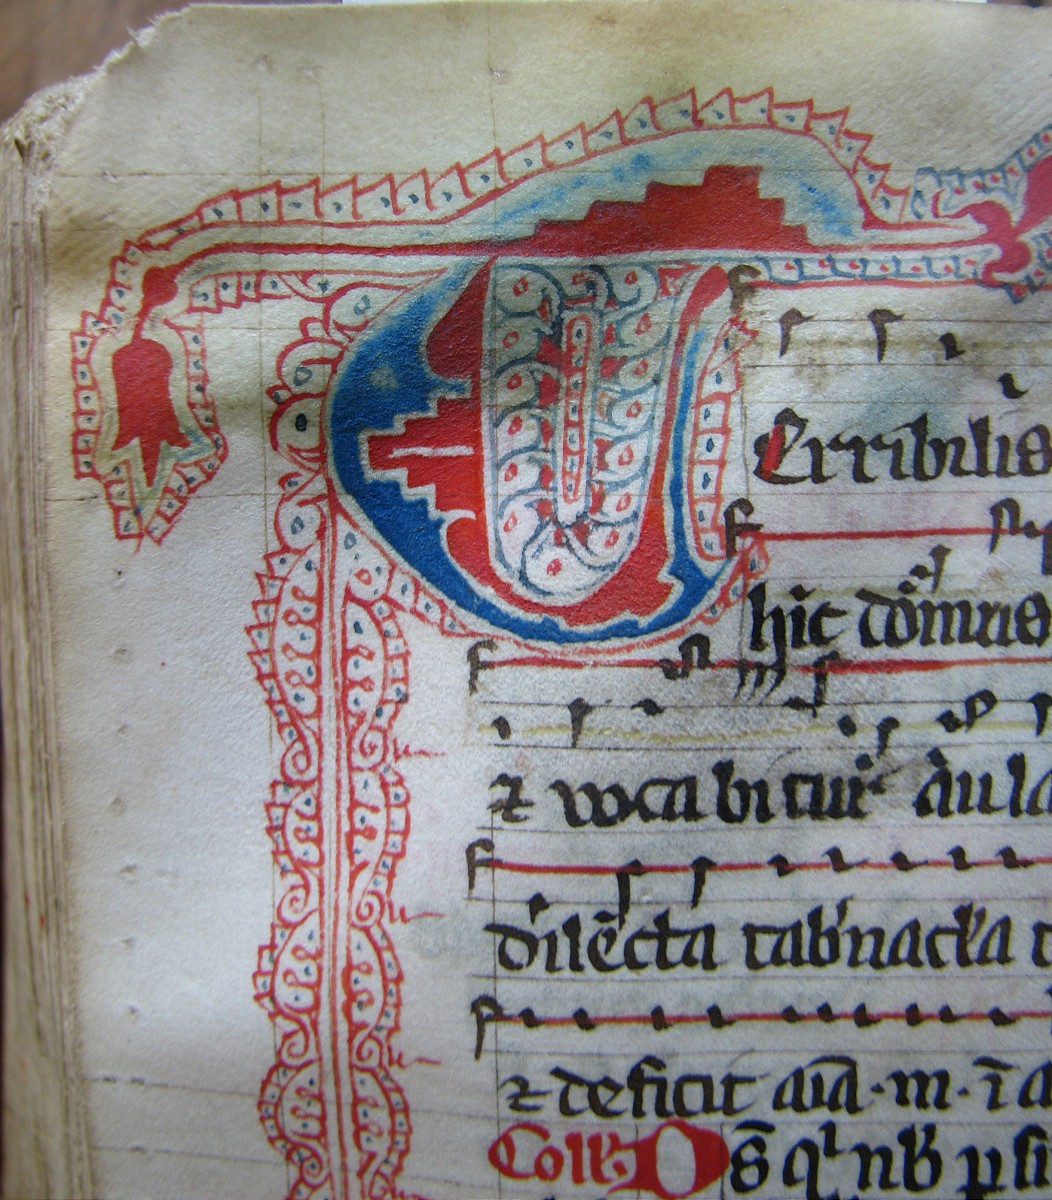 TErribilis
hic dom̄us
⁊ vocabitur aula
dilēcta tab'nac̄la
⁊ deficit aīa · m · ī a
Coll'. Ds̄ qi nb̄